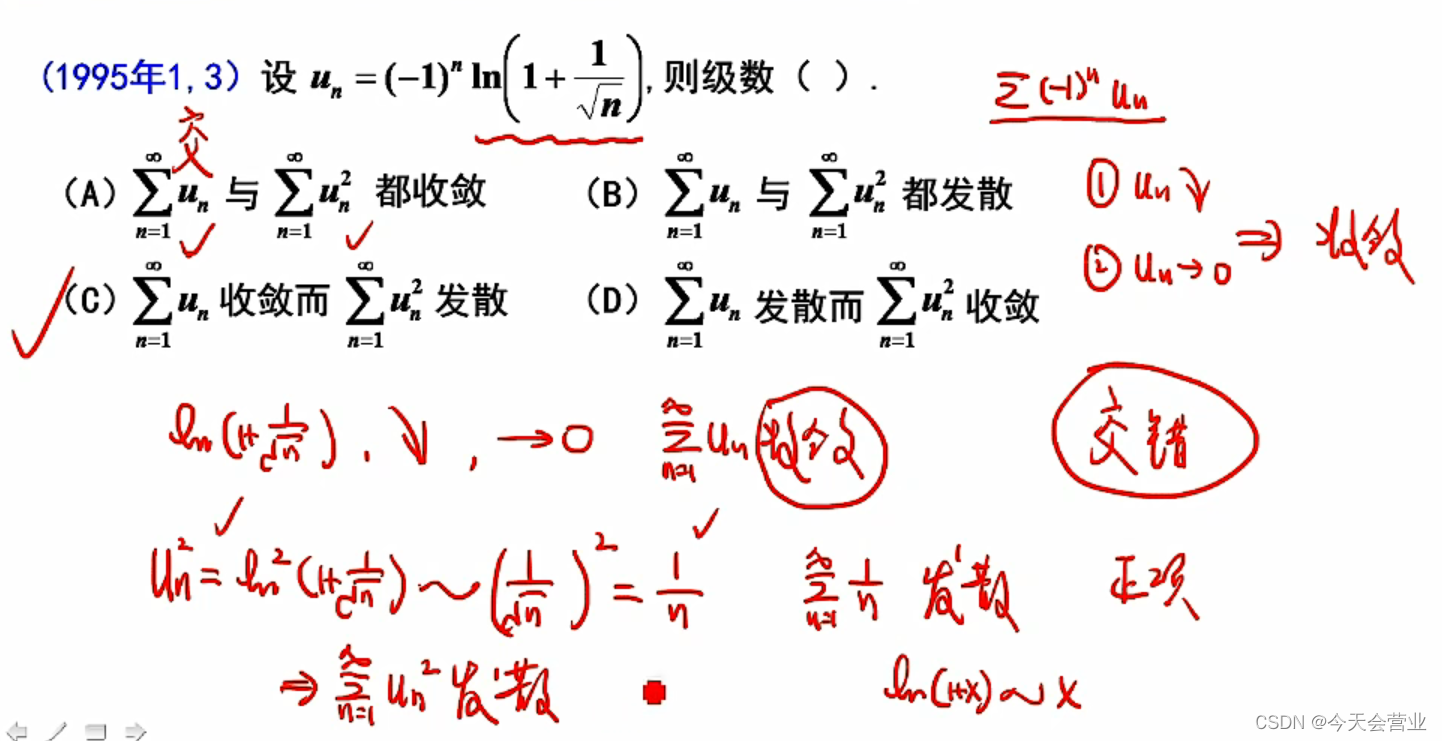 (1995年1,3) 设 uₙ = (−1)ⁿ ln(1 + 1/√n), 则级数 ( ) .
∑(-1)ⁿ uₙ
交
(A) ∑_{n=1}^{∞} uₙ 与 ∑_{n=1}^{∞} uₙ² 都收敛
(B) ∑_{n=1}^{∞} uₙ 与 ∑_{n=1}^{∞} uₙ² 都发散
① uₙ ↘
② uₙ → 0
⇒ 收敛
(C) ∑_{n=1}^{∞} uₙ 收敛而 ∑_{n=1}^{∞} uₙ² 发散
(D) ∑_{n=1}^{∞} uₙ 发散而 ∑_{n=1}^{∞} uₙ² 收敛
ln(1+1/√n) , ↘ , → 0 ∑_{n=1}^{∞} uₙ 收敛
交错
uₙ² = ln²(1+1/√n) ~ (1/√n)² = 1/n
∑_{n=1}^{∞} 1/n 发散 正项
⇒ ∑_{n=1}^{∞} uₙ² 发散
ln(1+x) ~ x
CSDN @今天会营业